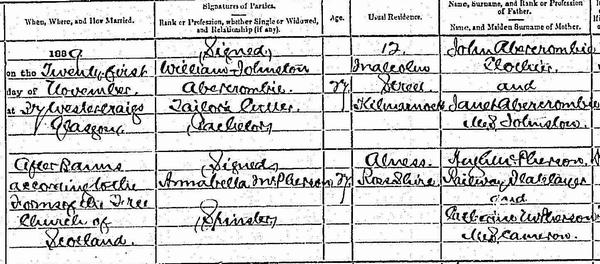 When, Where, and How Married.
Signatures of Parties.
Rank or Profession, whether Single or Widowed, and Relationship (if any).
Age.
Usual Residence.
Name, Surname, and Rank or Profession of Father.
Name, and Maiden Surname of Mother.
1889
on the Twenty first
day of November
at Wester Craigs
Glasgow
(Signed)
William Johnston
Abercrombie
Tailor's Cutter
(Bachelor)
27
12
Malcolm
Street
Kilmarnock
John Abercrombie
Clothier
and
Janet Abercrombie
M.S. Johnston.
After Banns
according to the
Forms of the Free
Church of
Scotland.
(Signed)
Annabella McPherson
(Spinster)
Alness
Ross Shire
Hugh McPherson
Railway Platelayer
and
Catherine McPherson
M.S. Cameron.